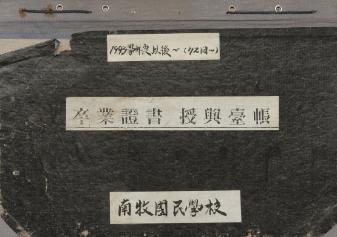 1993學年度以後~(42回~)
卒業證書 授與臺帳
南牧國民學校